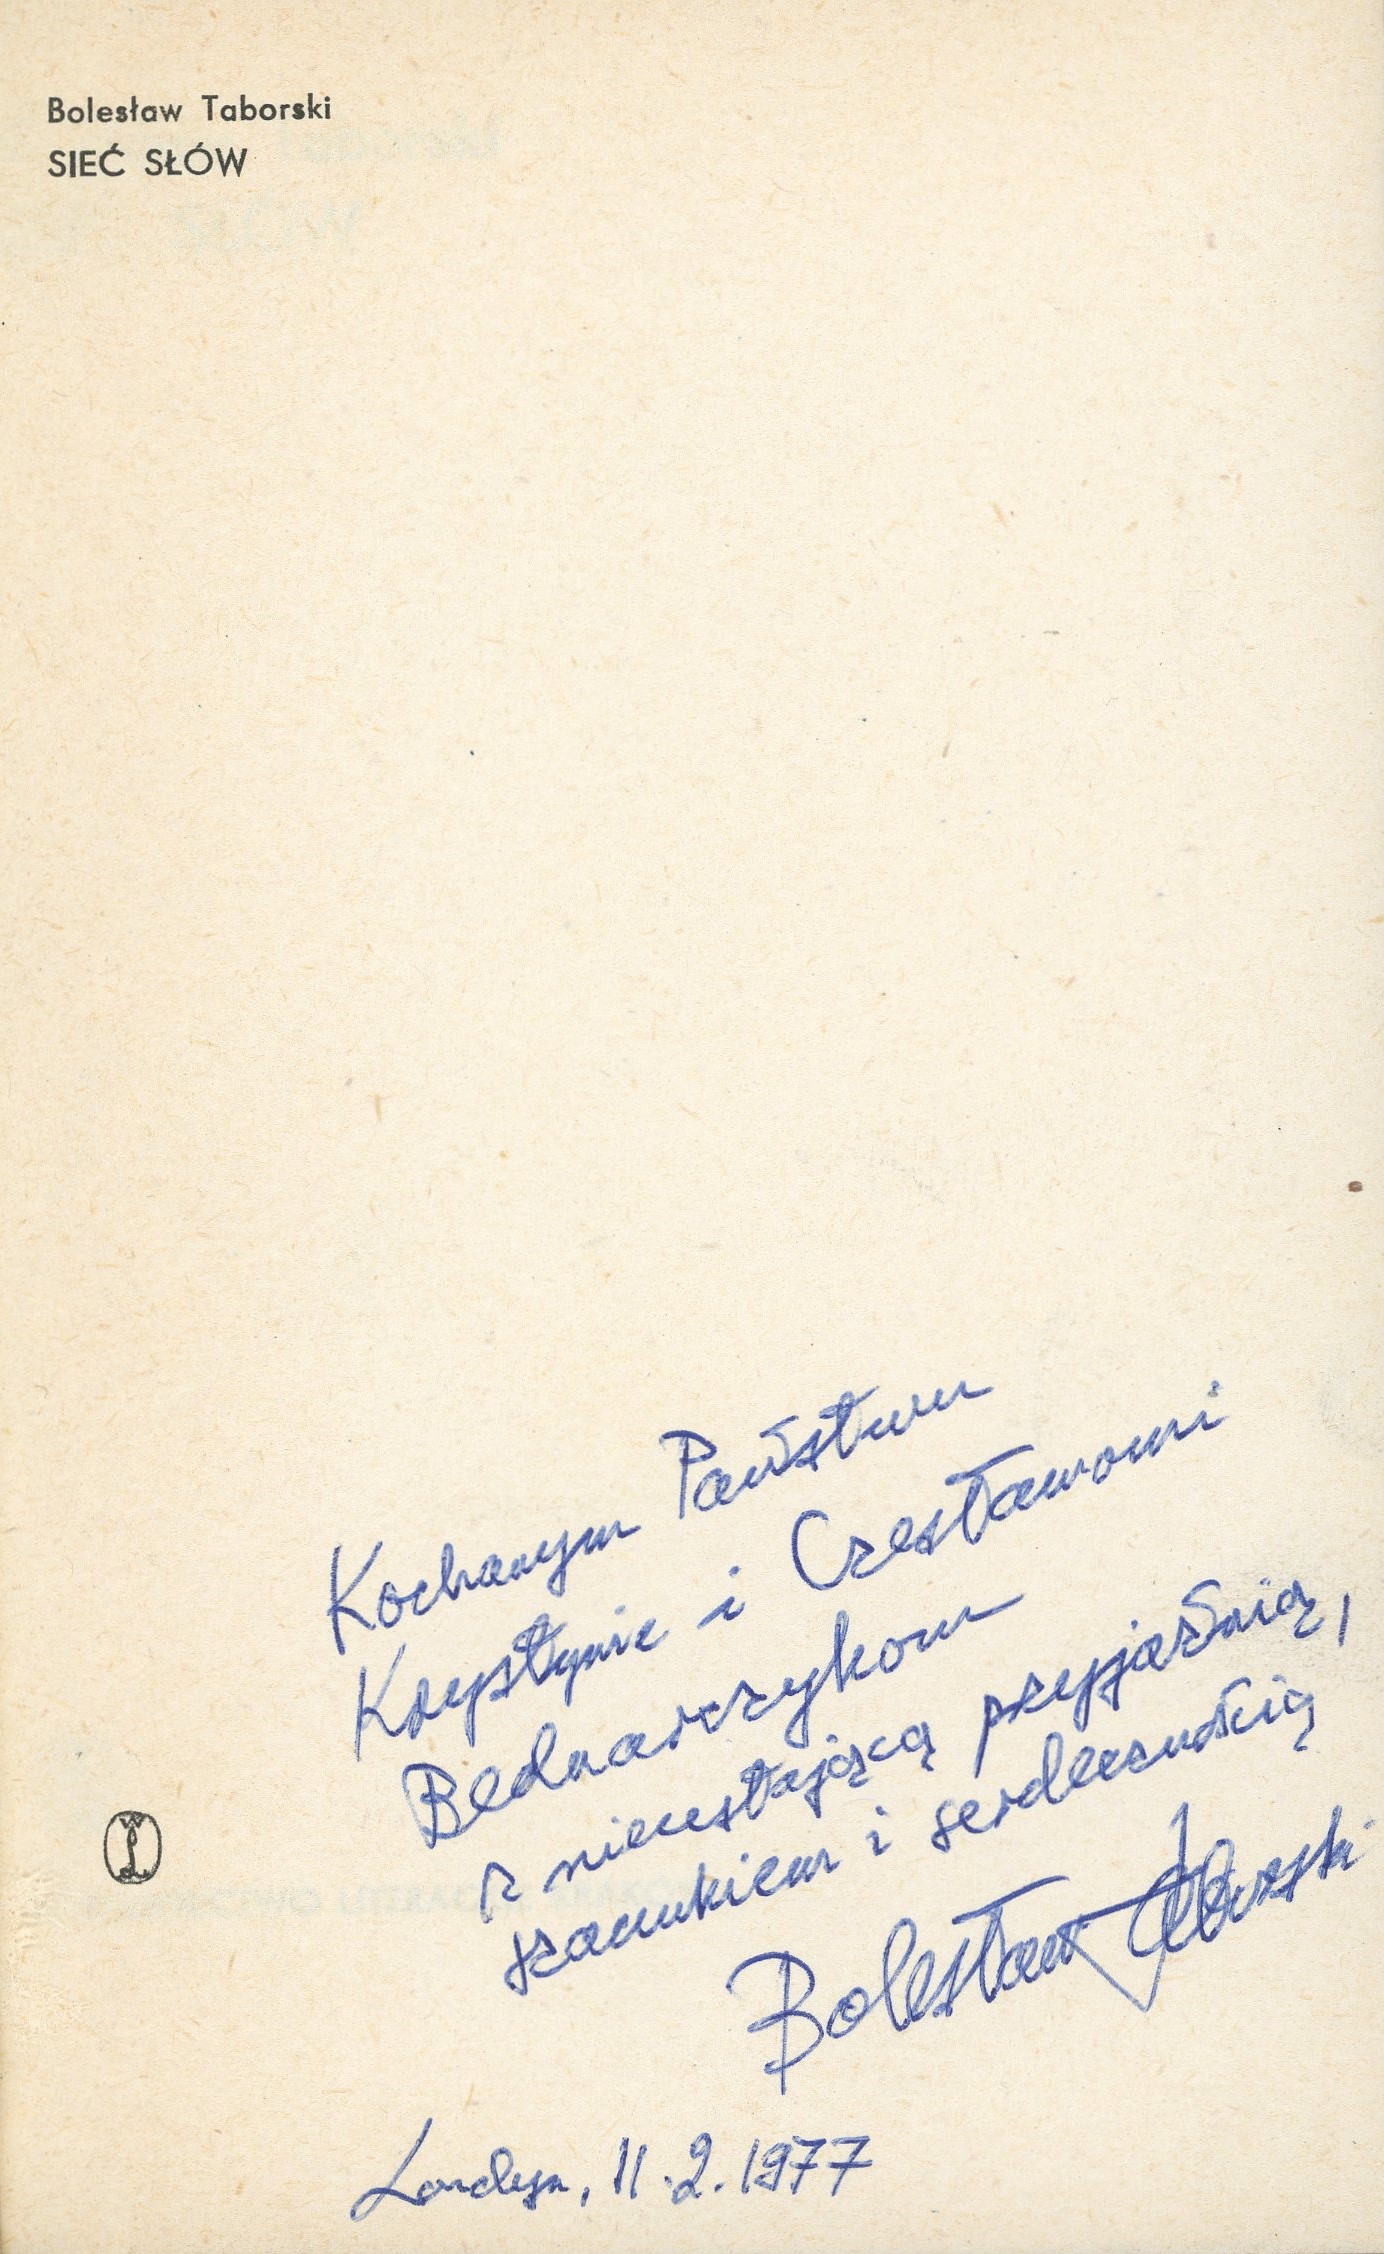 Bolesław Taborski
SIEĆ SŁÓW
Kochanym Państwu
Krystynie i Czesławowi
Bednarczykom
z nieustającą przyjaźnią,
szacunkiem i serdecznością
Bolesław Taborski
Londyn, 11.2.1977